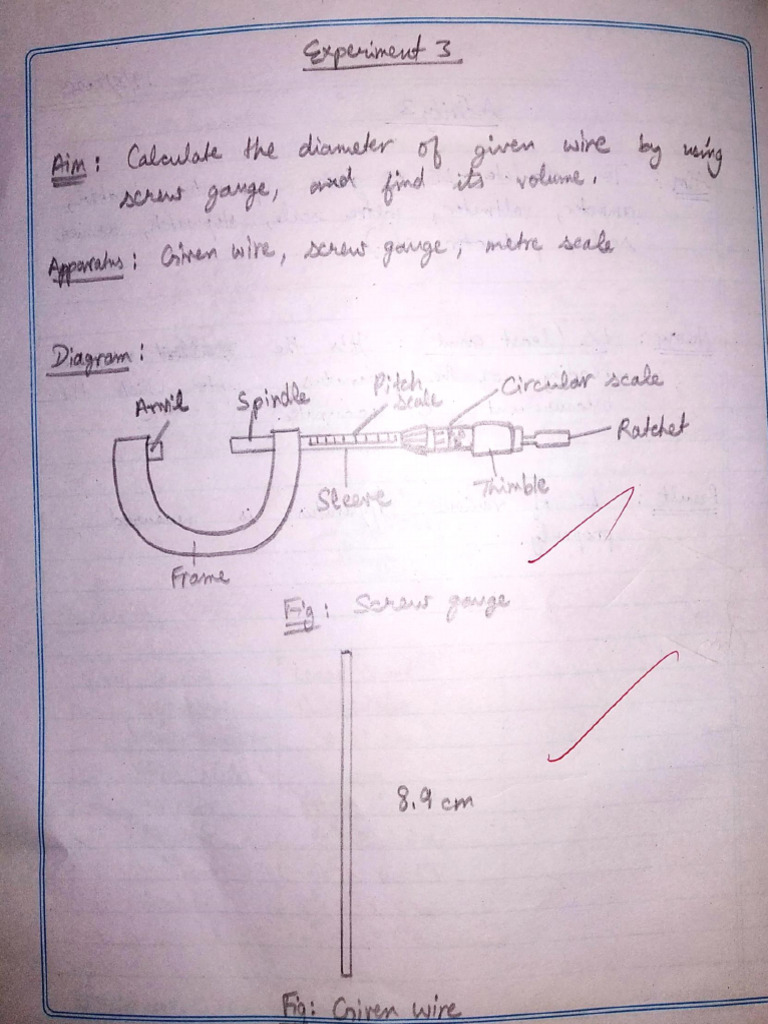 Experiment 3
Aim: Calculate the diameter of given wire by using
screw gauge, and find its volume.
Apparatus: Given wire, screw gauge, metre scale
Diagram:
Anvil
Spindle
Pitch
scale
Circular scale
Ratchet
Sleeve
Thimble
Frame
Fig: Screw gauge
8.9 cm
Fig: Given wire